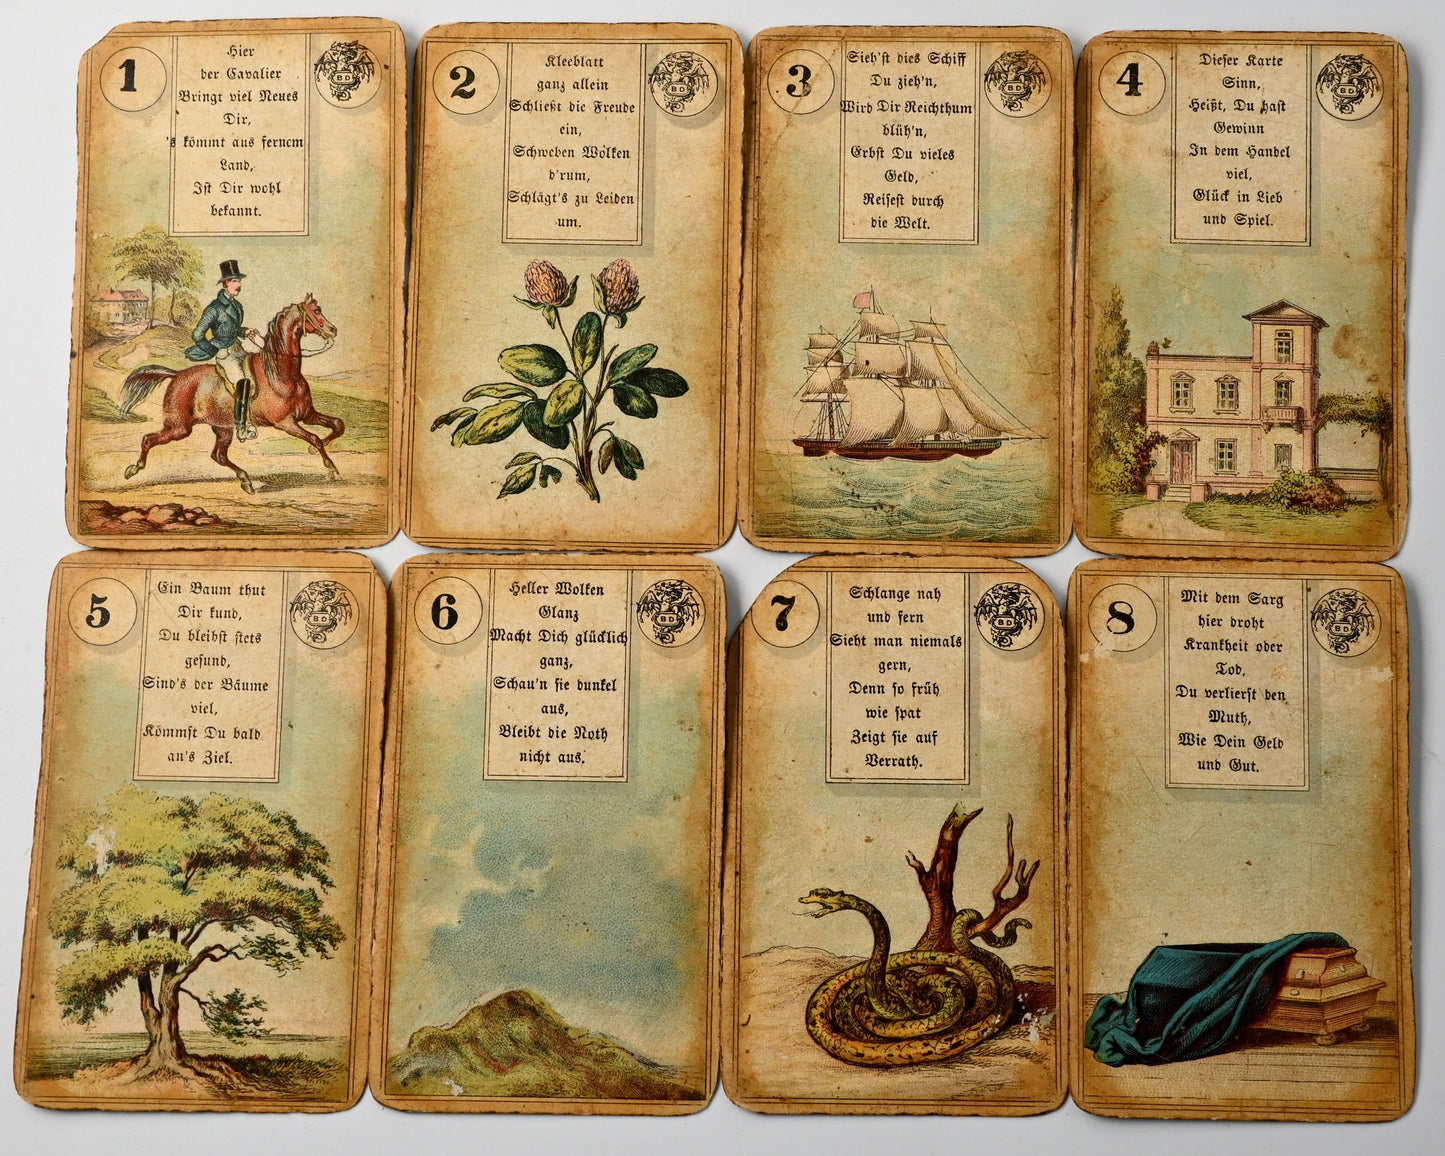 1
Hier
der Cavalier
Bringt viel Neues
Dir,
's kömmt aus fernem
Land,
Ist Dir wohl
bekannt.
BD
2
Kleeblatt
ganz allein
Schließt die Freude
ein,
Schweben Wolken
d'rum,
Schlägt's zu Leiden
um.
BD
3
Sieh'st dies Schiff
Du zieh'n,
Wird Dir Reichthum
blüh'n,
Erbst Du vieles
Geld,
Reisest durch
die Welt.
BD
4
Dieser Karte
Sinn,
Heißt, Du hast
Gewinn
In dem Handel
viel,
Glück in Lieb
und Spiel.
BD
5
Ein Baum thut
Dir kund,
Du bleibst stets
gesund,
Sind's der Bäume
viel,
Kömmst Du bald
an's Ziel.
BD
6
Heller Wolken
Glanz
Macht Dich glücklich
ganz,
Schau'n sie dunkel
aus,
Bleibt die Noth
nicht aus.
BD
7
Schlange nah
und fern
Sieht man niemals
gern,
Denn so früh
wie spat
Zeigt sie auf
Verrath.
BD
8
Mit dem Sarg
hier droht
Krankheit oder
Tod,
Du verlierst den
Muth,
Wie Dein Geld
und Gut.
BD